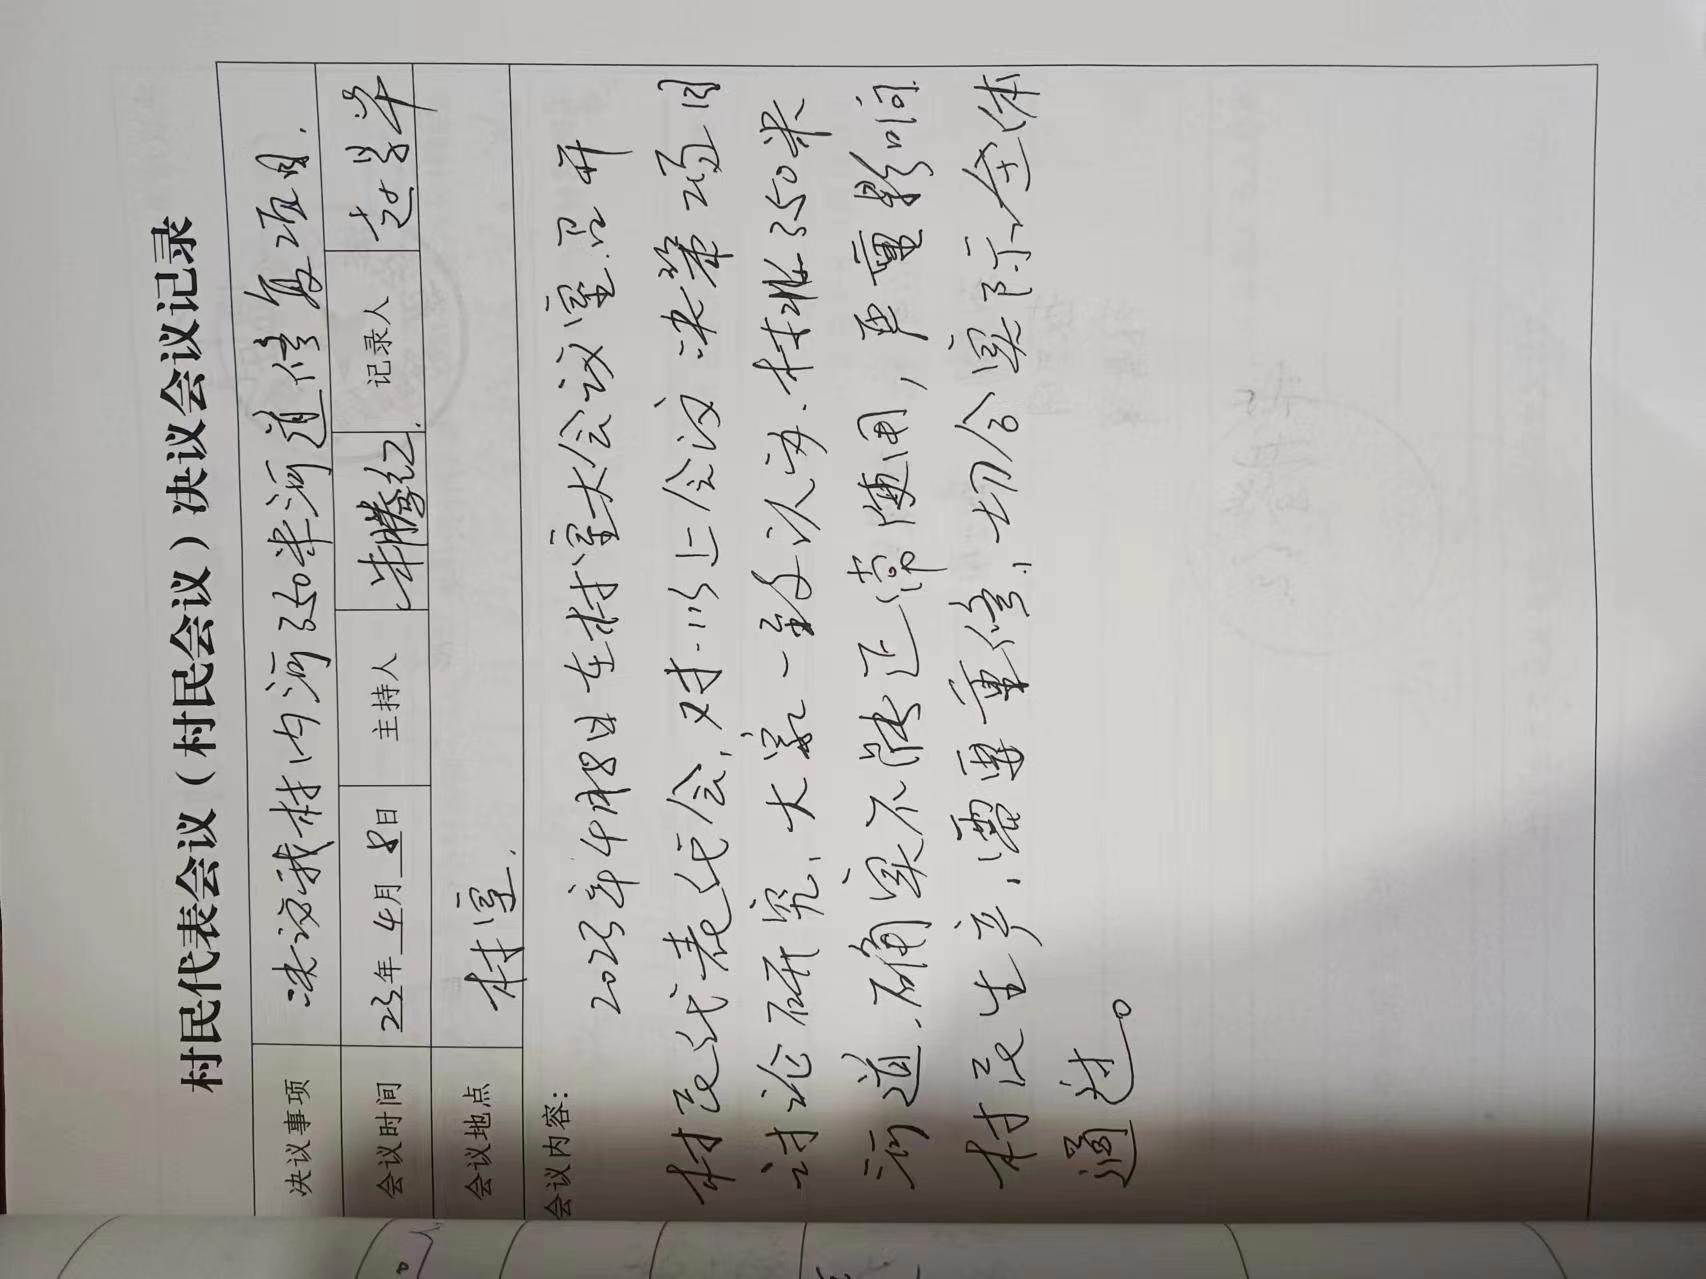 村民代表会议（村民会议）决议会议记录
决议事项 决议我村内河350米河道修复项目.
会议时间 23年4月8日 主持人 朱腾红 记录人
会议地点 村室.
会议内容：
2023年4月8日在村室大会议室召开
村民代表代会,对以上会议决策项目
讨论研究、大家一致认为.村北350米
河道.确实不能正常使用，严重影响
村民生产、需要重修、切合实际、全体
通过。